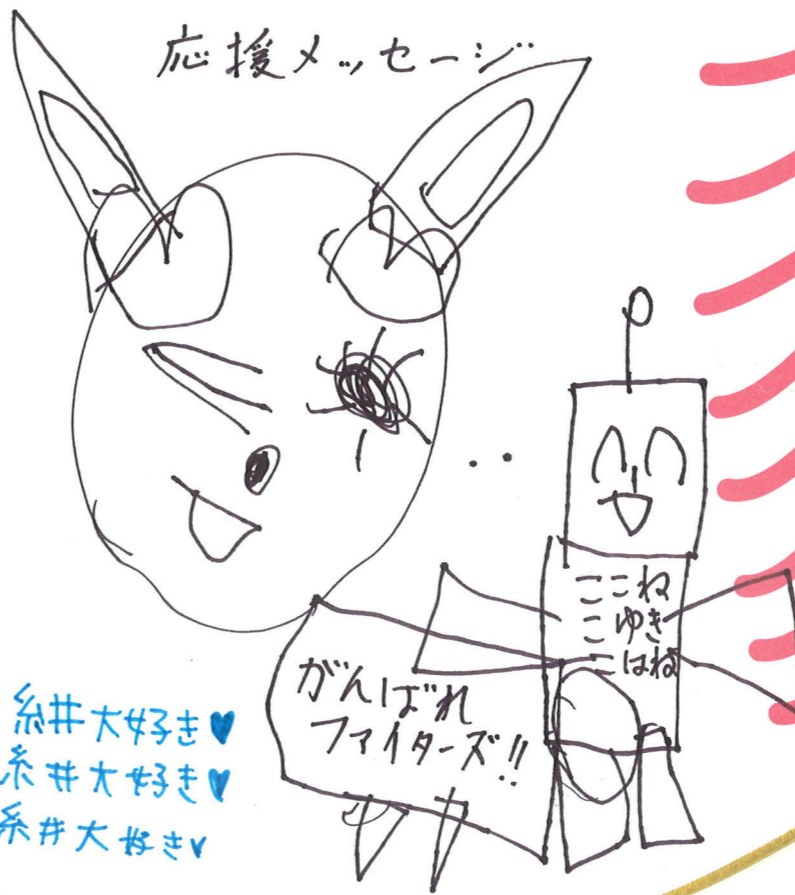 応援メッセージ
ここね
こゆき
こはね
がんばれ
ファイターズ!!
糸井大好き♥
糸井大好き♥
糸井大好き♥